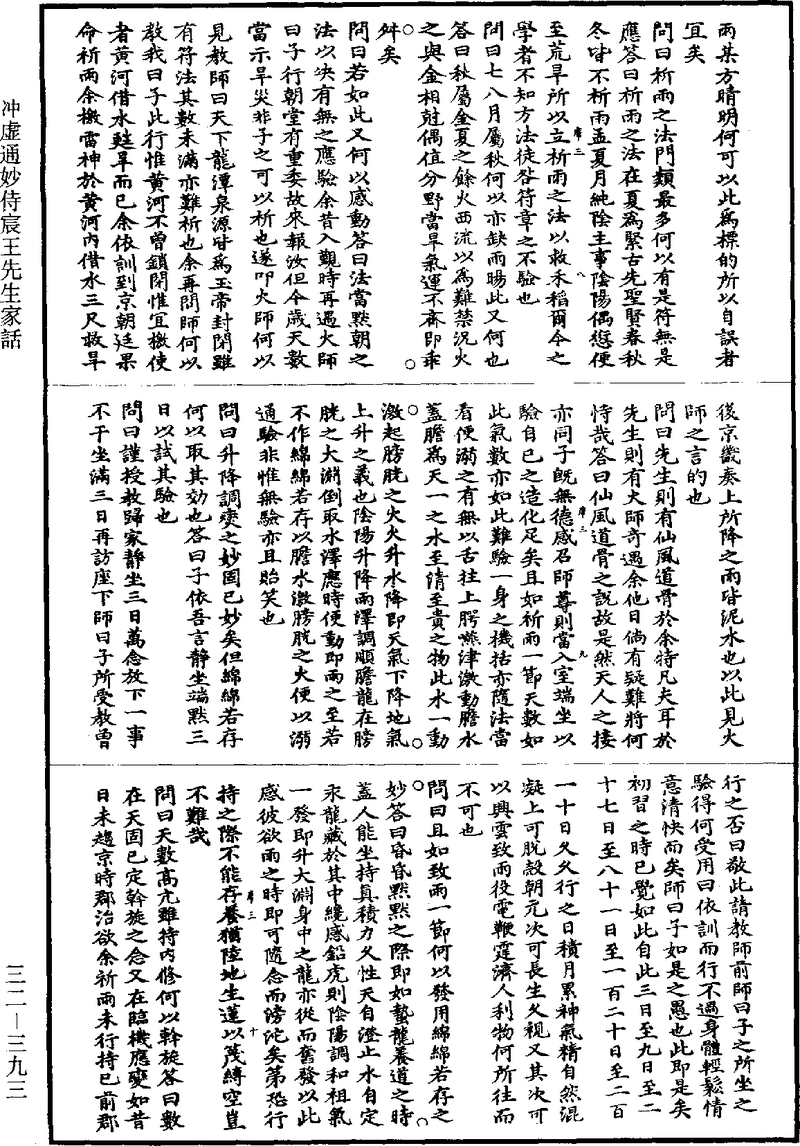 雨某方晴明何可以此為標的所以自誤者
宜矣
問曰祈雨之法門類最多何以有是符無是
應答曰祈雨之法在夏為緊古先聖賢春秋
冬皆不祈雨孟夏月純陰主事陰陽偶愆便
至荒旱所以立祈雨之法以救禾稻爾今之
學者不知方法徒咎符章之不驗也
問曰七八月屬秋何以亦缺雨暘此又何也
答曰秋屬金夏之餘火西流以為難禁況火
之與金相尅偶值分野當旱氣運不齊即乖
舛矣
問曰若如此又何以感動答曰法當默朝之
法以決有無之應驗余昔入觀時再遇火師
曰子行朝堂有重委故來報汝但今歲天數
當示旱災非子之可以祈也遂叩火師何以
見教師曰天下龍潭泉源皆為玉帝封閉雖
有符法其數未滿亦難祈也余再問師何以
教我曰子此行惟黃河不曾鎖閉惟宜檄使
者黃河借水救旱而已余依訓到京朝廷果
命祈雨余檄雷神於黃河內借水三尺救旱
後京畿奏上所降之雨皆泥水也以此見火
師之言的也
問曰先生則有仙風道骨於余特凡夫耳於
先生則有火師奇遇余他日倘有疑難將何
恃哉答曰仙風道骨之説故是然天人之接
亦同子既無德感召師尊則當入室端坐以
驗自己之造化足矣且如祈雨一節天數如
此氣數亦如此難驗一身之機括亦隨法當
看便溺之有無以舌拄上腭嚥津激動膽水
蓋膽為天一之水至清至貴之物此水一動
激起膀胱之火火升水降即天氣下降地氣
上升之義也陰陽升降雨澤調順膽龍在膀
胱之大淵倒取水澤應時便動即雨之至若
不作綿綿若存以膽水激膀胱之火便以溺
通驗非惟無驗亦且貽笑也
問曰升降調燮之妙固已妙矣但綿綿若存
何以取其効也答曰子依吾言靜坐端默三
日以試其驗也
問曰謹授教歸家靜坐三日萬念放下一事
不干坐滿三日再訪座下師曰子所受教曾
行之否曰敬此請教師前師曰子之所坐之
驗得何受用曰依訓而行不過身體輕鬆情
意清快而矣師曰子如是之愚也此即是矣
初習之時已覺如此自此三日至九日至二
十七日至八十一日至一百二十日至二百
一十日久久行之日積月累神氣精自然混
凝上可脫殼朝元次可長生久視又其次可
以興雲致雨役電鞭霆濟人利物何所往而
不可也
問曰且如致雨一節何以發用綿綿若存之
妙答曰昏昏默默之際即如蟄龍養道之時
蓋人能坐持真積力久性天自澄止水自定
汞龍藏於其中纔感鉛虎則陰陽調和祖氣
一發即升大淵身中之龍亦從而奮發以此
感彼欲雨之時即可隨念而滂沱矣第恐行
持之際不能存養猶陸地生蓮以茂縛空豈
不難哉
問曰天數高亢雖持內修何以斡旋答曰數
在天固已定斡旋之念又在臨機應變如昔
日未趨京時郡治欲余祈雨未行持已前郡
冲虛通妙侍宸王先生家話
三二—三九三